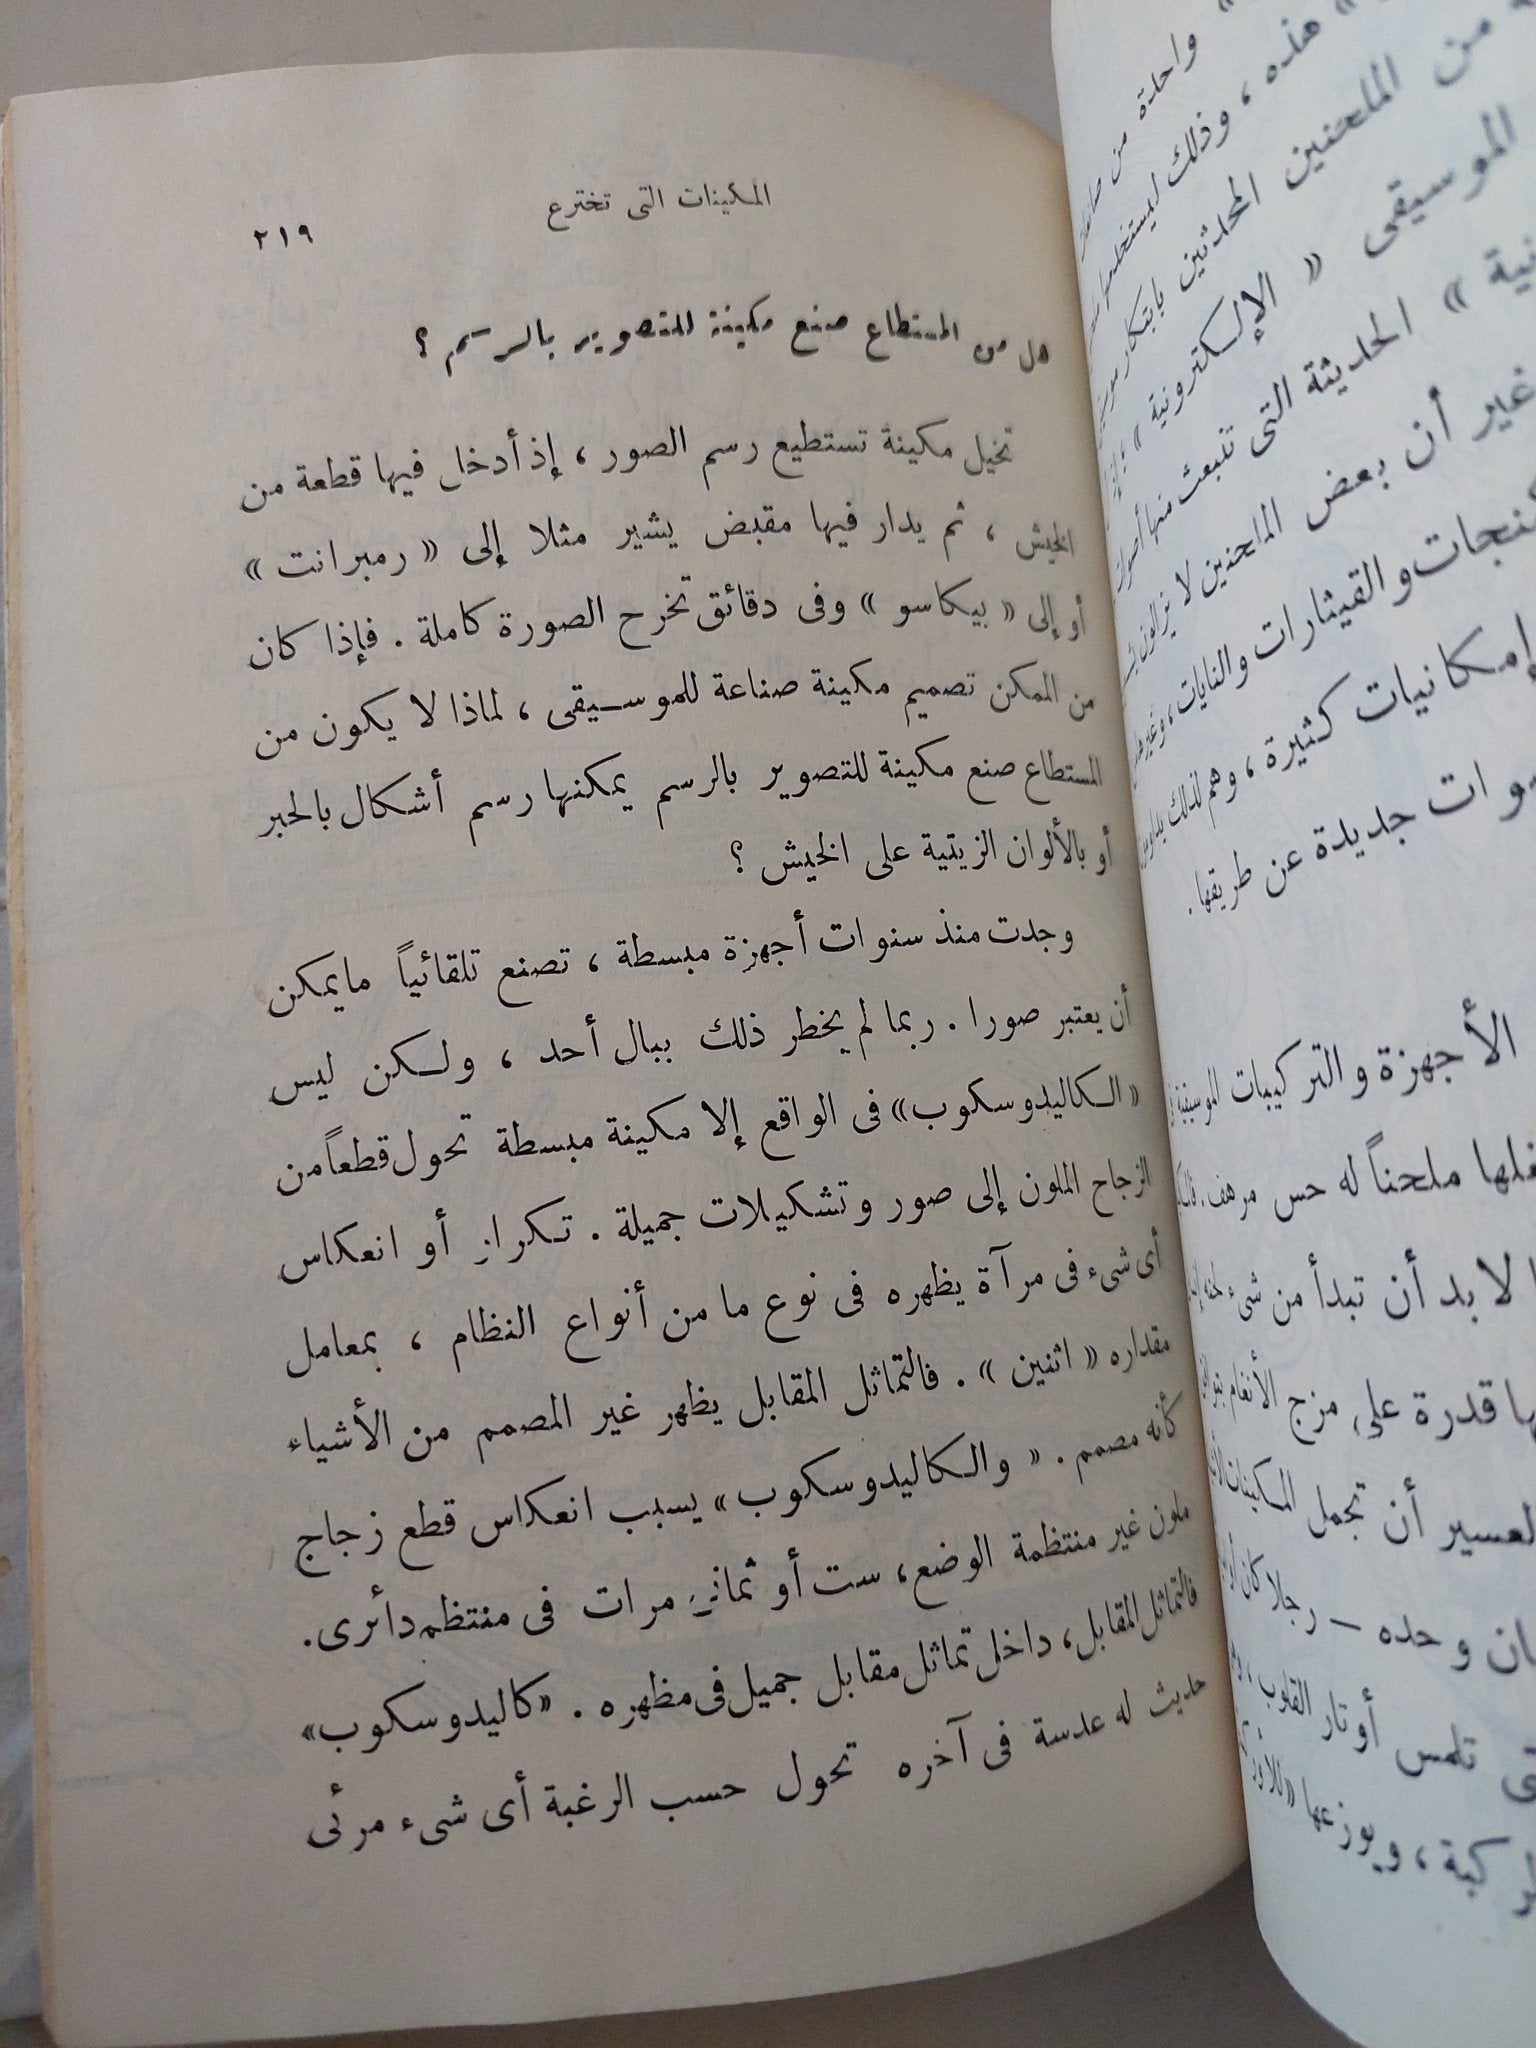 المكينات التى تخترع
٢١٩
هل من المستطاع صنع مكينة للتصوير بالرسم ؟
تخيل مكينة تستطيع رسم الصور ، إذ أدخل فيها قطعة من
الخيش ، ثم يدار فيها مقبض يشير مثلا إلى « رمبرانت »
أو إلى « بيكاسو » وفى دقائق تخرح الصورة كاملة . فإذا كان
من الممكن تصميم مكينة صناعة للموسيقى ، لماذا لا يكون من
المستطاع صنع مكينة للتصوير بالرسم يمكنها رسم أشكال بالحبر
أو بالألوان الزيتية على الخيش ؟
وجدت منذ سنوات أجهزة مبسطة ، تصنع تلقائياً مايمكن
أن يعتبر صورا . ربما لم يخطر ذلك ببال أحد ، ولكن ليس
« الكاليدوسكوب » فى الواقع إلا مكينة مبسطة تحول قطعاً من
الزجاح الملون إلى صور وتشكيلات جميلة . تكرار أو انعكاس
أى شىء فى مرآة يظهره فى نوع ما من أنواع النظام ، بمعامل
مقداره « اثنين » . فالتماثل المقابل يظهر غير المصمم من الأشياء
كأنه مصمم . « والكاليدوسكوب » يسبب انعكاس قطع زجاج
ملون غير منتظمة الوضع ، ست أو ثمانى مرات فى منتظم دائرى .
فالتماثل المقابل ، داخل تماثل مقابل جميل فى مظهره . « كاليدوسكوب »
حديث له عدسة فى آخره تحول حسب الرغبة أى شىء مرئى
واحدة من
هذه ، وذلك ليستخدمها
من الملحنين المحدثين بابتكار
الموسيقى « الإلكترونية »
الحديثة التى تنبعث منها أصوات
غير أن بعض الملحنين لا يزالون
والقيثارات والنايات ، وغير
إمكانيات كثيرة ، وهم لذلك
جديدة عن طريقها .
الأجهزة والتركيبات الموسيقية
ملحناً له حس مرهف .
لا بد أن تبدأ من شىء
قدرة على مزج الأنغام
أن تجمل المكينات
وحده – رجلا كان
تلمس أوتار القلوب ،
، ويوزعها